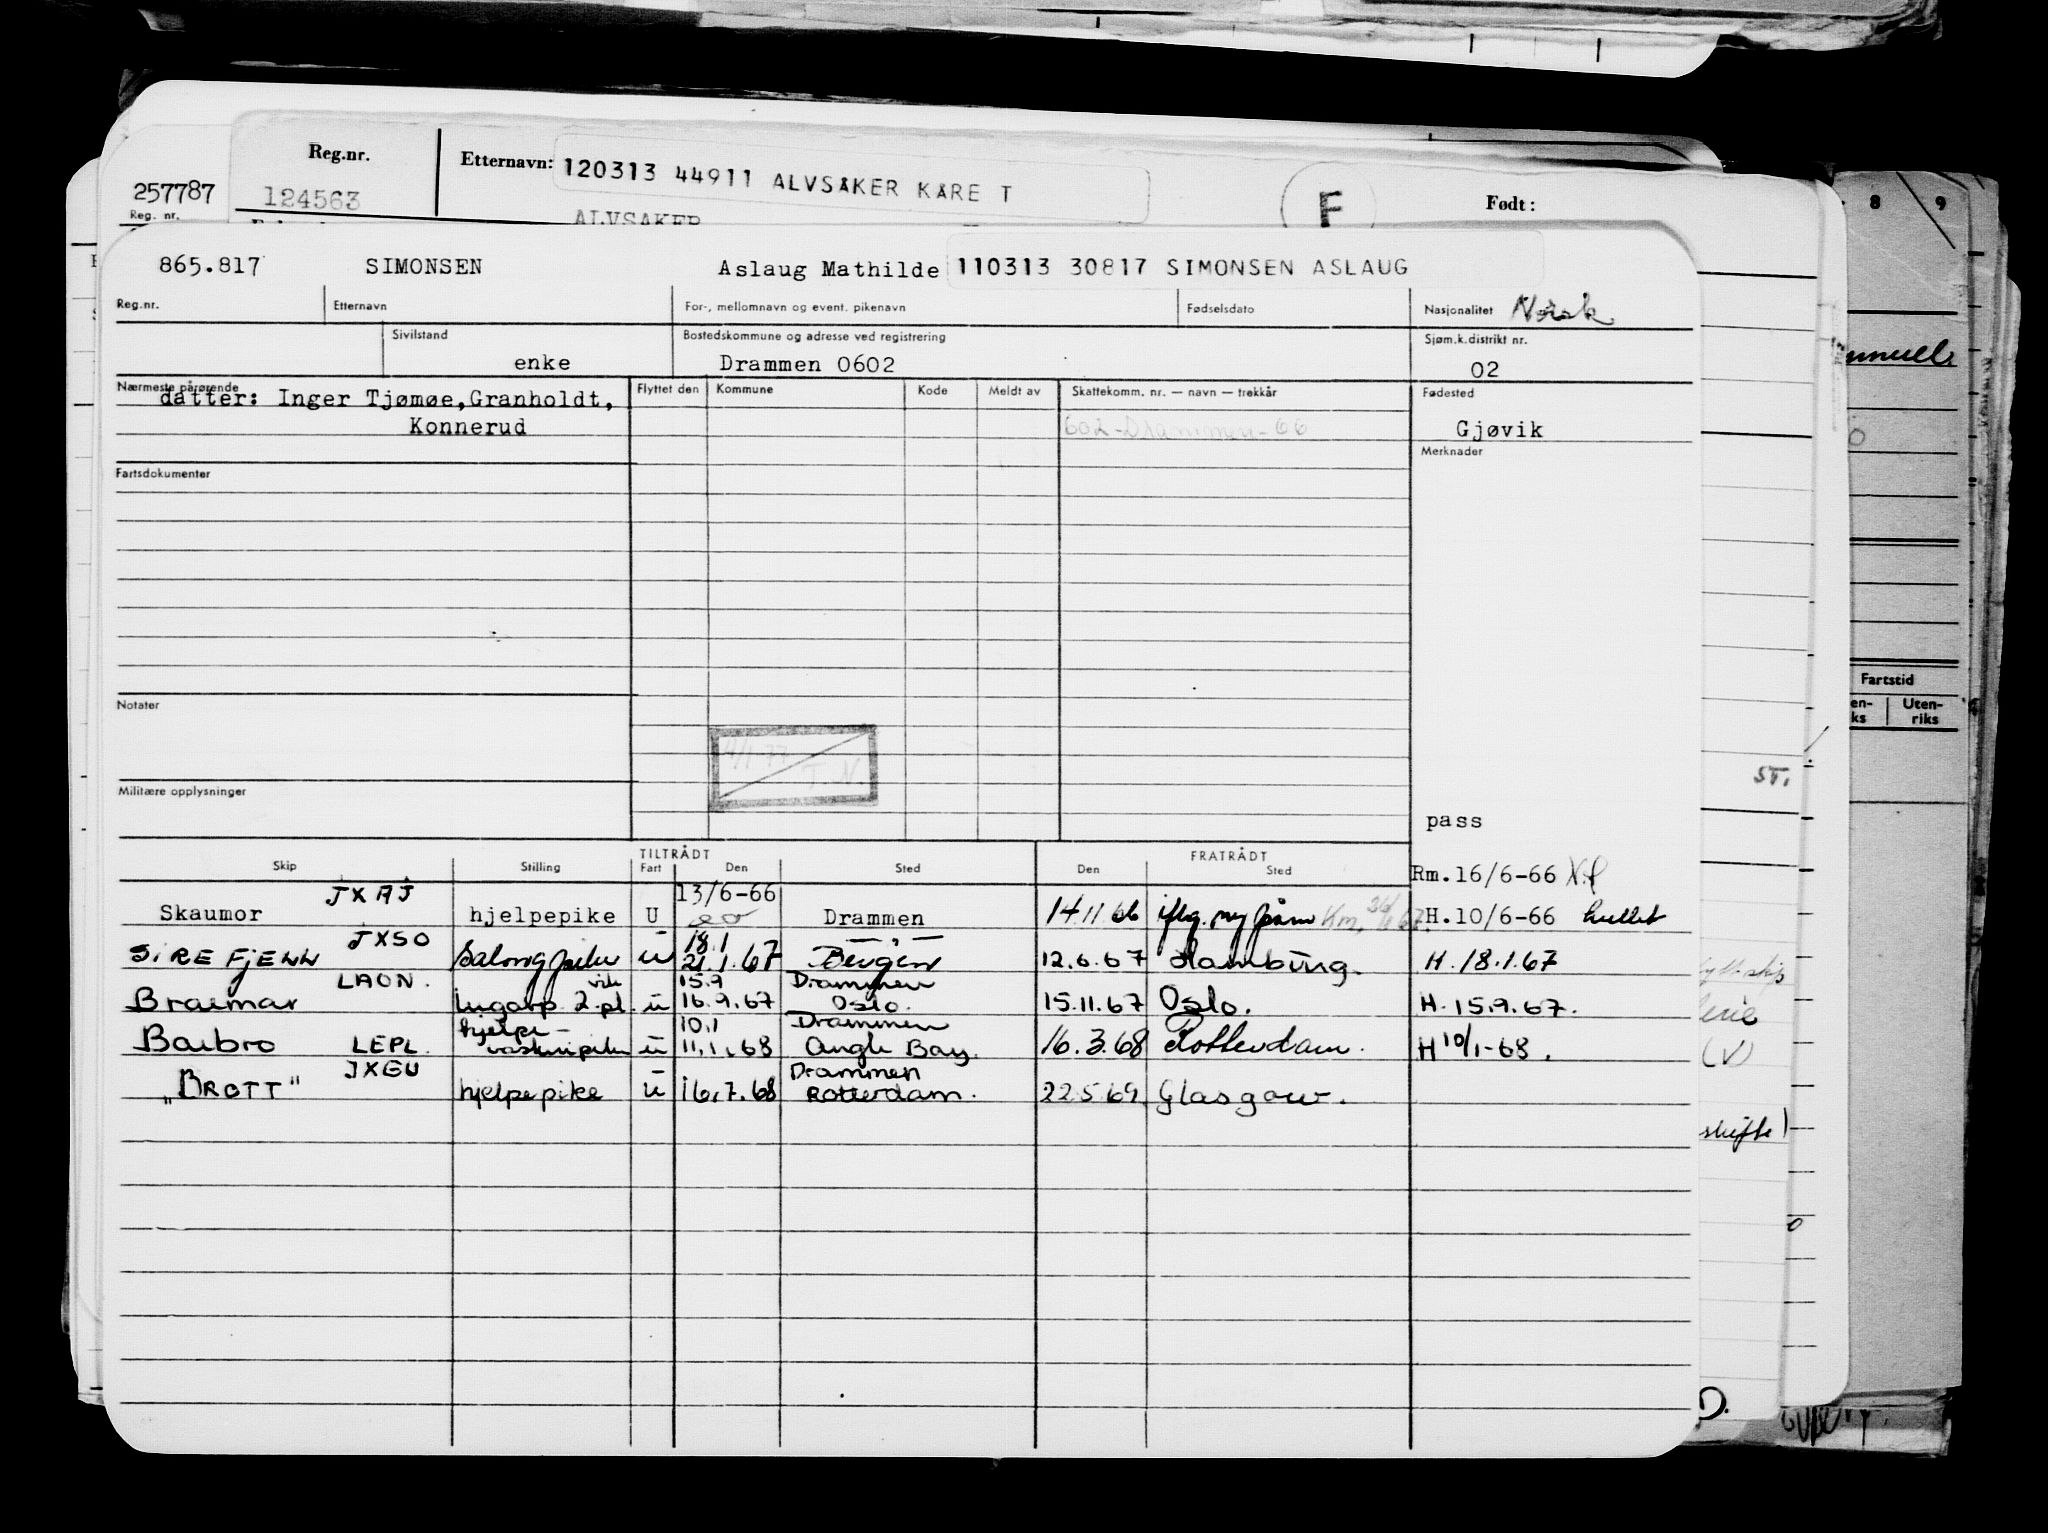 8 9
Reg.nr. Etternavn: 120313 44911 ALVSAKER KARE T F Født:
257787 124563 ALVSAKER
Reg. nr.
865.817 SIMONSEN Aslaug Mathilde 110313 30817 SIMONSEN ASLAUG
Reg.nr. Etternavn For-, mellomnavn og event. pikenavn Fødselsdato Nasjonalitet Norsk
Sivilstand Bostedskommune og adresse ved registrering Sjøm.k.distrikt nr.
enke Drammen 0602 02
Nærmeste pårørende Flyttet den Kommune Kode Meldt av Skattekomm. nr. — navn — trekkår Fødested
datter: Inger Tjømøe,Granholdt,
Konnerud 602-Drammen-66 Gjøvik
Merknader
Fartsdokumenter
Fartstid
Uten-
riks
Notater
4/1 77
T.N.
ST.
Militære opplysninger
pass
TILTRÅDT FRATRÅDT
Skip Stilling Fart Den Sted Den Sted
Rm.16/6-66
JXAJ 13/6-66
Skaumor hjelpepike U Drammen 14.11.66 iflg. ny påm H.10/6-66
JXSO 18.1
SIREFJELL Salongpike u 21.1.67 Bergen 12.6.67 Hamburg. H.18.1.67
LAON. vik 15.9 Drammen
Braemar lugarp 2.pl. u 16.9.67 Oslo. 15.11.67 Oslo. H.15.9.67.
hjelpe- 10.1 Drammen
Baibro LEPL. vaskeripike u 11.1.68 Angle Bay. 16.3.68 Rotterdam. H 10/1-68.
JXGU Drammen
"BROTT" hjelpepike u 16.7.68 Rotterdam. 22.5.69 Glasgow.
skifte)